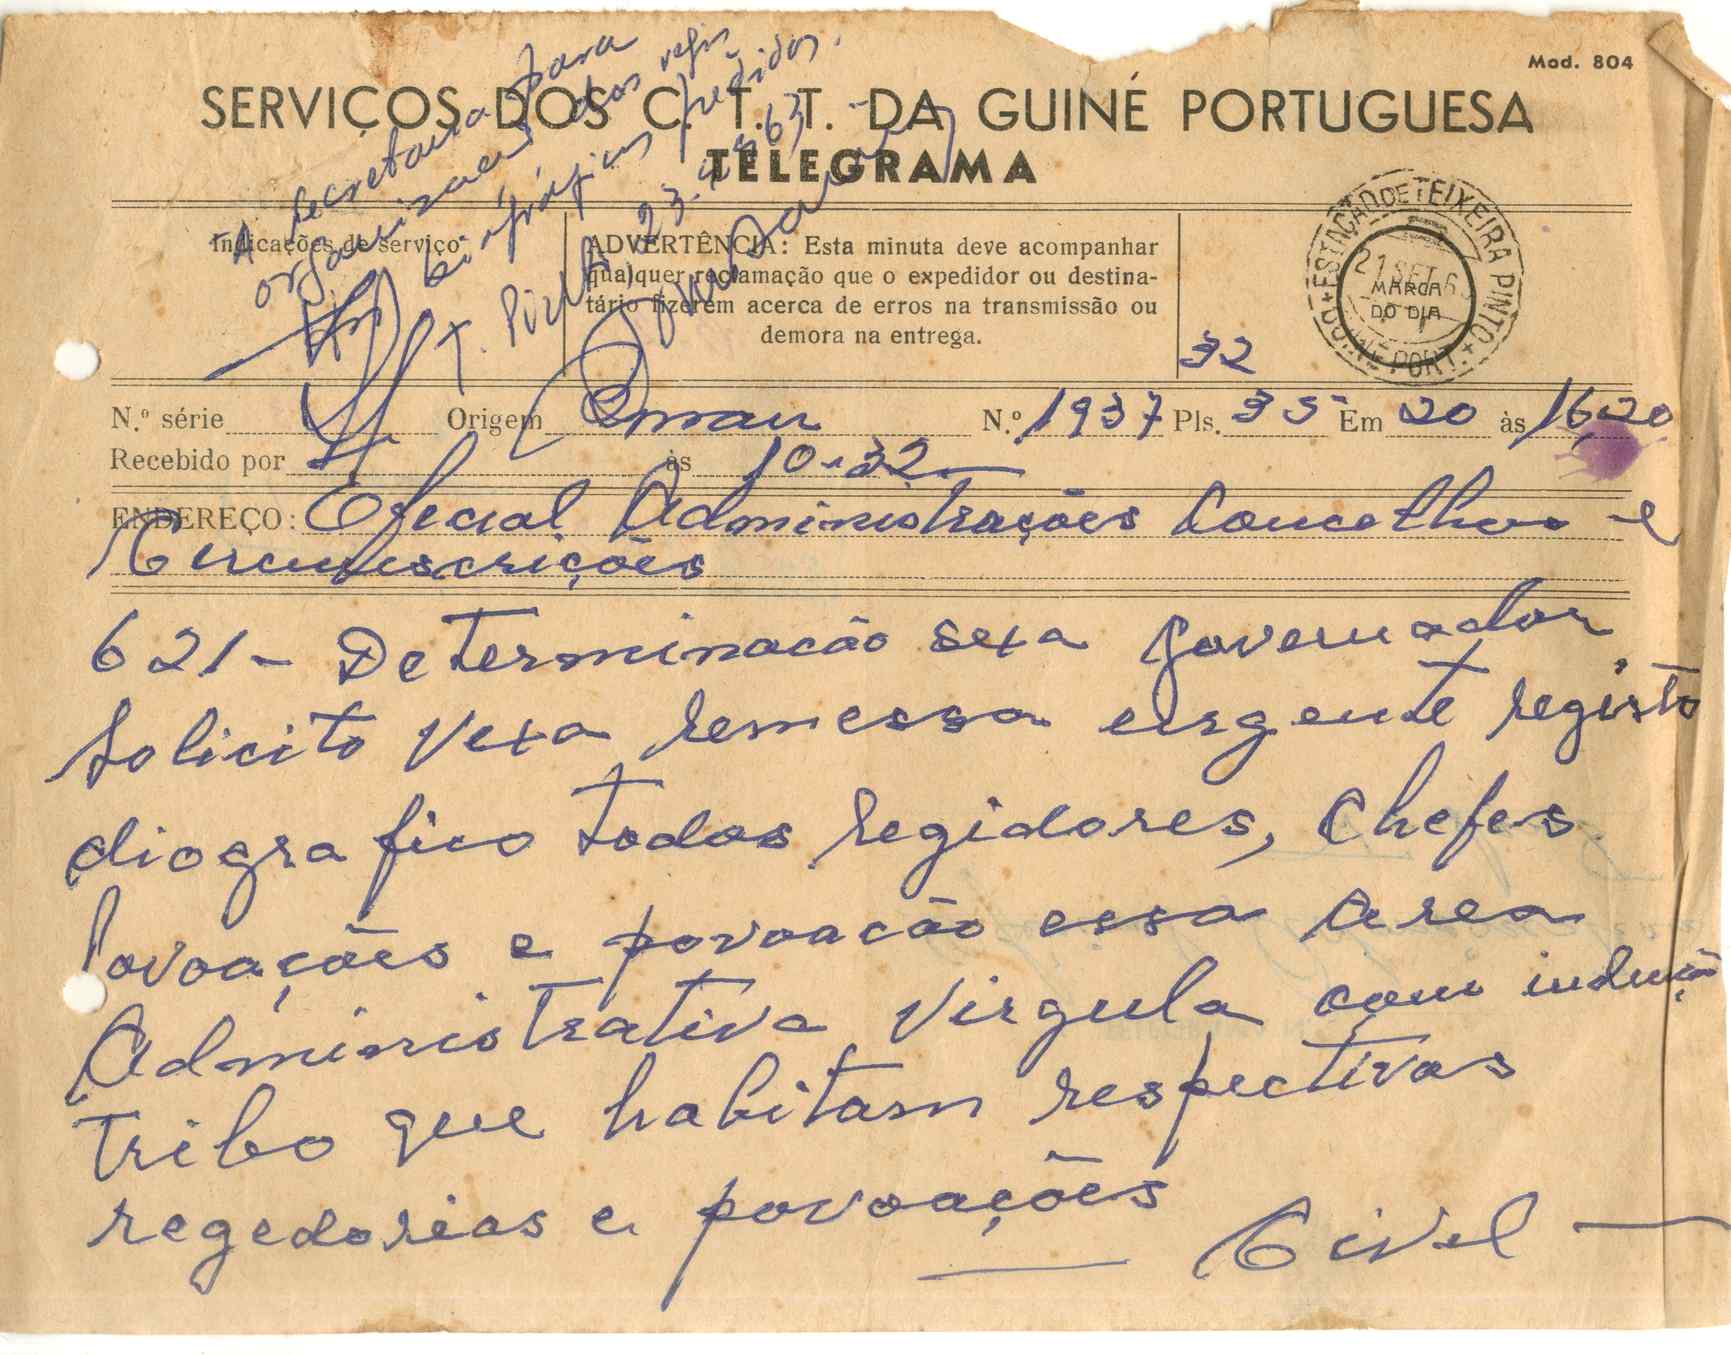 Mod. 804
À Secretaria para
organizar dos regis
biográficos pedidos.
T. Pinto, 23.9.63
SERVIÇOS DOS C. T. T. DA GUINÉ PORTUGUESA
TELEGRAMA
Indicações de serviço
ADVERTÊNCIA: Esta minuta deve acompanhar
qualquer reclamação que o expedidor ou destina-
tário fizerem acerca de erros na transmissão ou
demora na entrega.
32
ESTAÇÃO DE TEIXEIRA PINTO
21 SET. 6
MARCA
DO DIA
GUINÉ PORT.
N.º série Origem Bissau N.º 1937 Pls. 35 Em 20 às 16,20
Recebido por às 10-32
ENDEREÇO: Oficial Administrações Concelhos e
Circunscrições
621 - Determinacão sexa Governador
Solicito Vexa remessa urgente registo
diografico todos regidores, Chefes
Povoações e povoacão essa area
Administrativa virgula com
tribo que habitam respectivas
regedorias e povoações
Civil